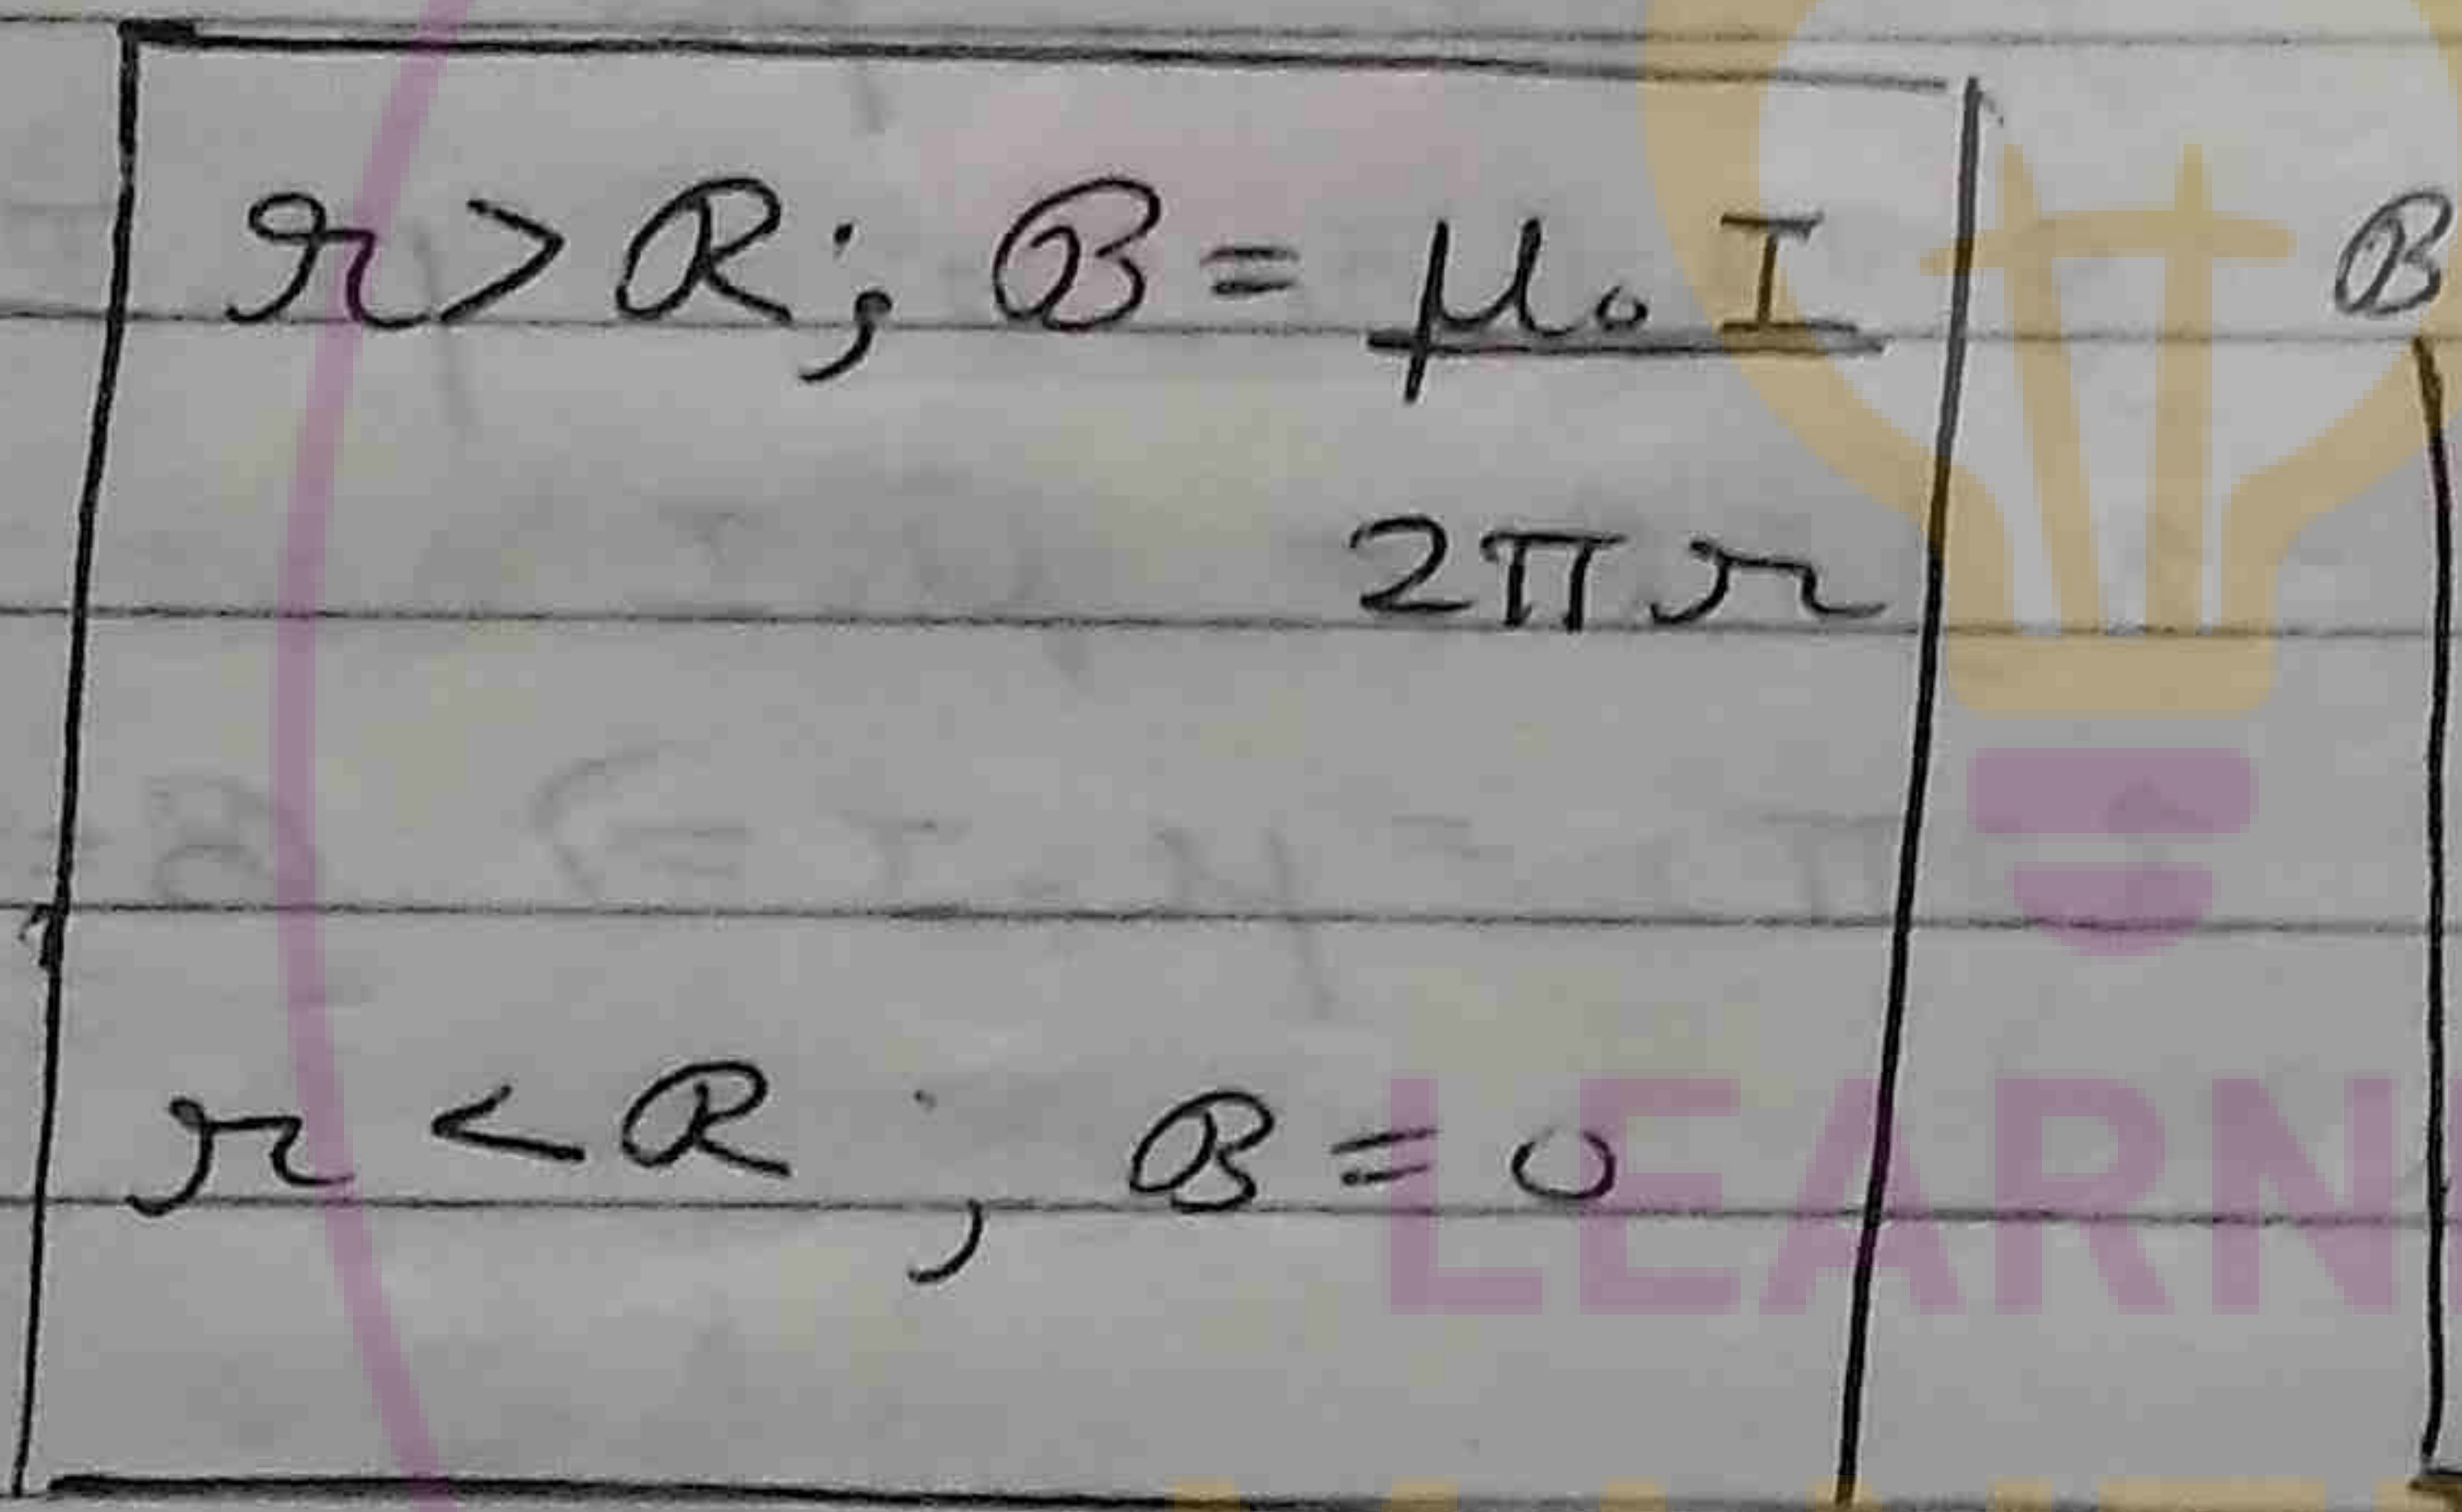 r > R ; B = μ₀ I
2πr
B
r < R ; B = 0
LEARN